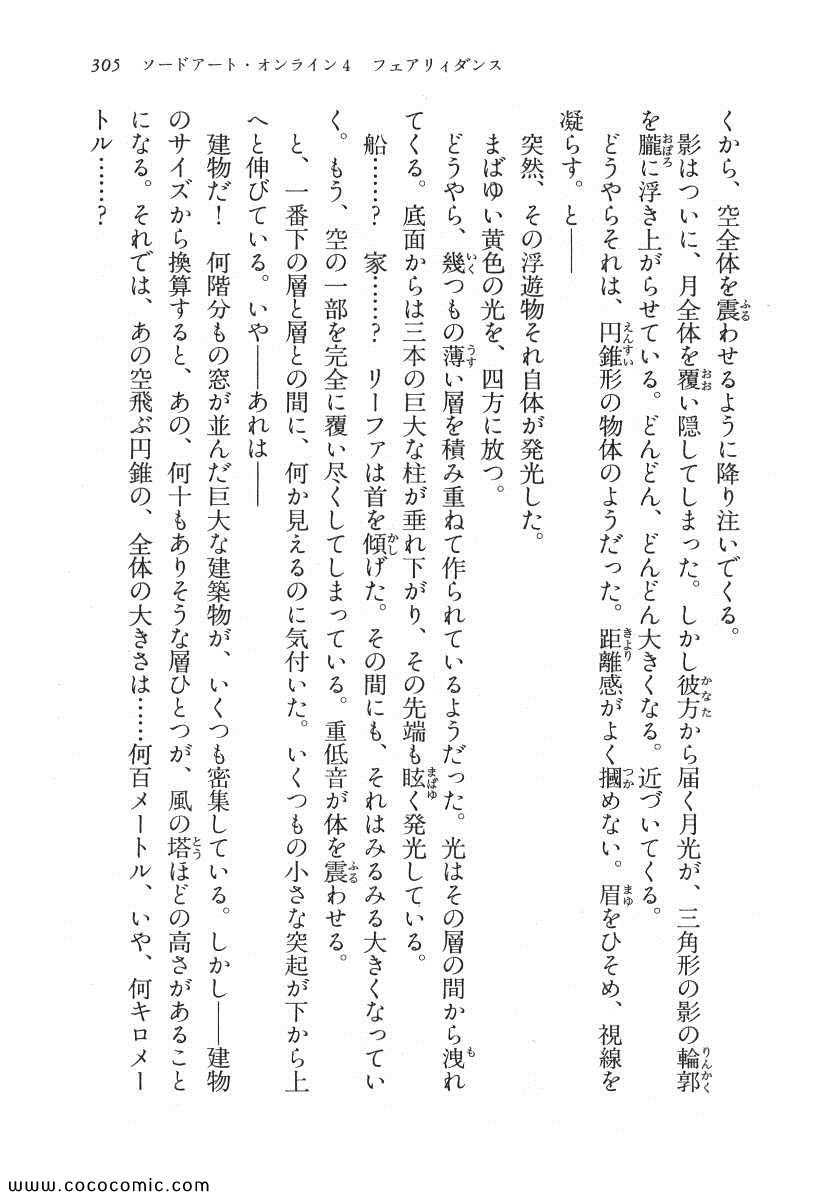 305 ソードアート・オンライン4 フェアリィダンス
くから、空全体を震わせるように降り注いでくる。
影はついに、月全体を覆い隠してしまった。しかし彼方から届く月光が、三角形の影の輪郭
を朧に浮き上がらせている。どんどん、どんどん大きくなる。近づいてくる。
どうやらそれは、円錐形の物体のようだった。距離感がよく摑めない。眉をひそめ、視線を
凝らす。と――
突然、その浮遊物それ自体が発光した。
まばゆい黄色の光を、四方に放つ。
どうやら、幾つもの薄い層を積み重ねて作られているようだった。光はその層の間から洩れ
てくる。底面からは三本の巨大な柱が垂れ下がり、その先端も眩く発光している。
船……? 家……? リーファは首を傾げた。その間にも、それはみるみる大きくなってい
く。もう、空の一部を完全に覆い尽くしてしまっている。重低音が体を震わせる。
と、一番下の層と層との間に、何か見えるのに気付いた。いくつもの小さな突起が下から上
へと伸びている。いや――あれは――
建物だ! 何階分もの窓が並んだ巨大な建築物が、いくつも密集している。しかし――建物
のサイズから換算すると、あの、何十もありそうな層ひとつが、風の塔ほどの高さがあること
になる。それでは、あの空飛ぶ円錐の、全体の大きさは……何百メートル、いや、何キロメー
トル……?
www.cococomic.com